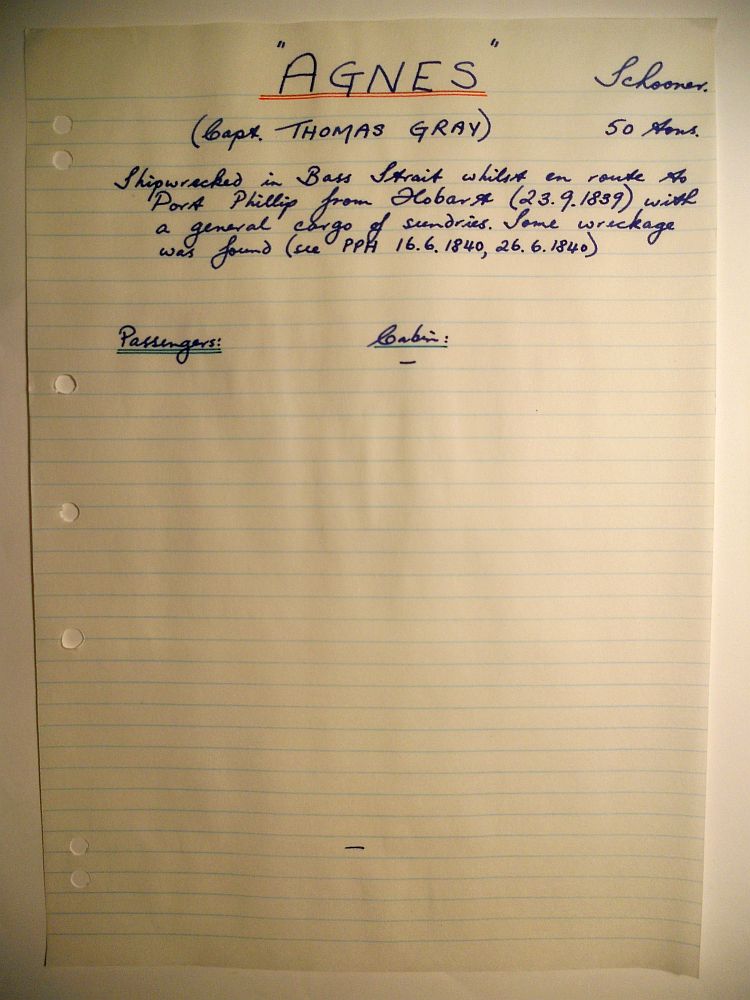 "AGNES" Schooner.
(Capt. THOMAS GRAY) 50 tons.
Shipwrecked in Bass Strait whilst en route to
Port Phillip from Hobart (23.9.1839) with
a general cargo of sundries. Some wreckage
was found (see PPH 16.6.1840, 26.6.1840)
Passengers: Cabin:
—
—